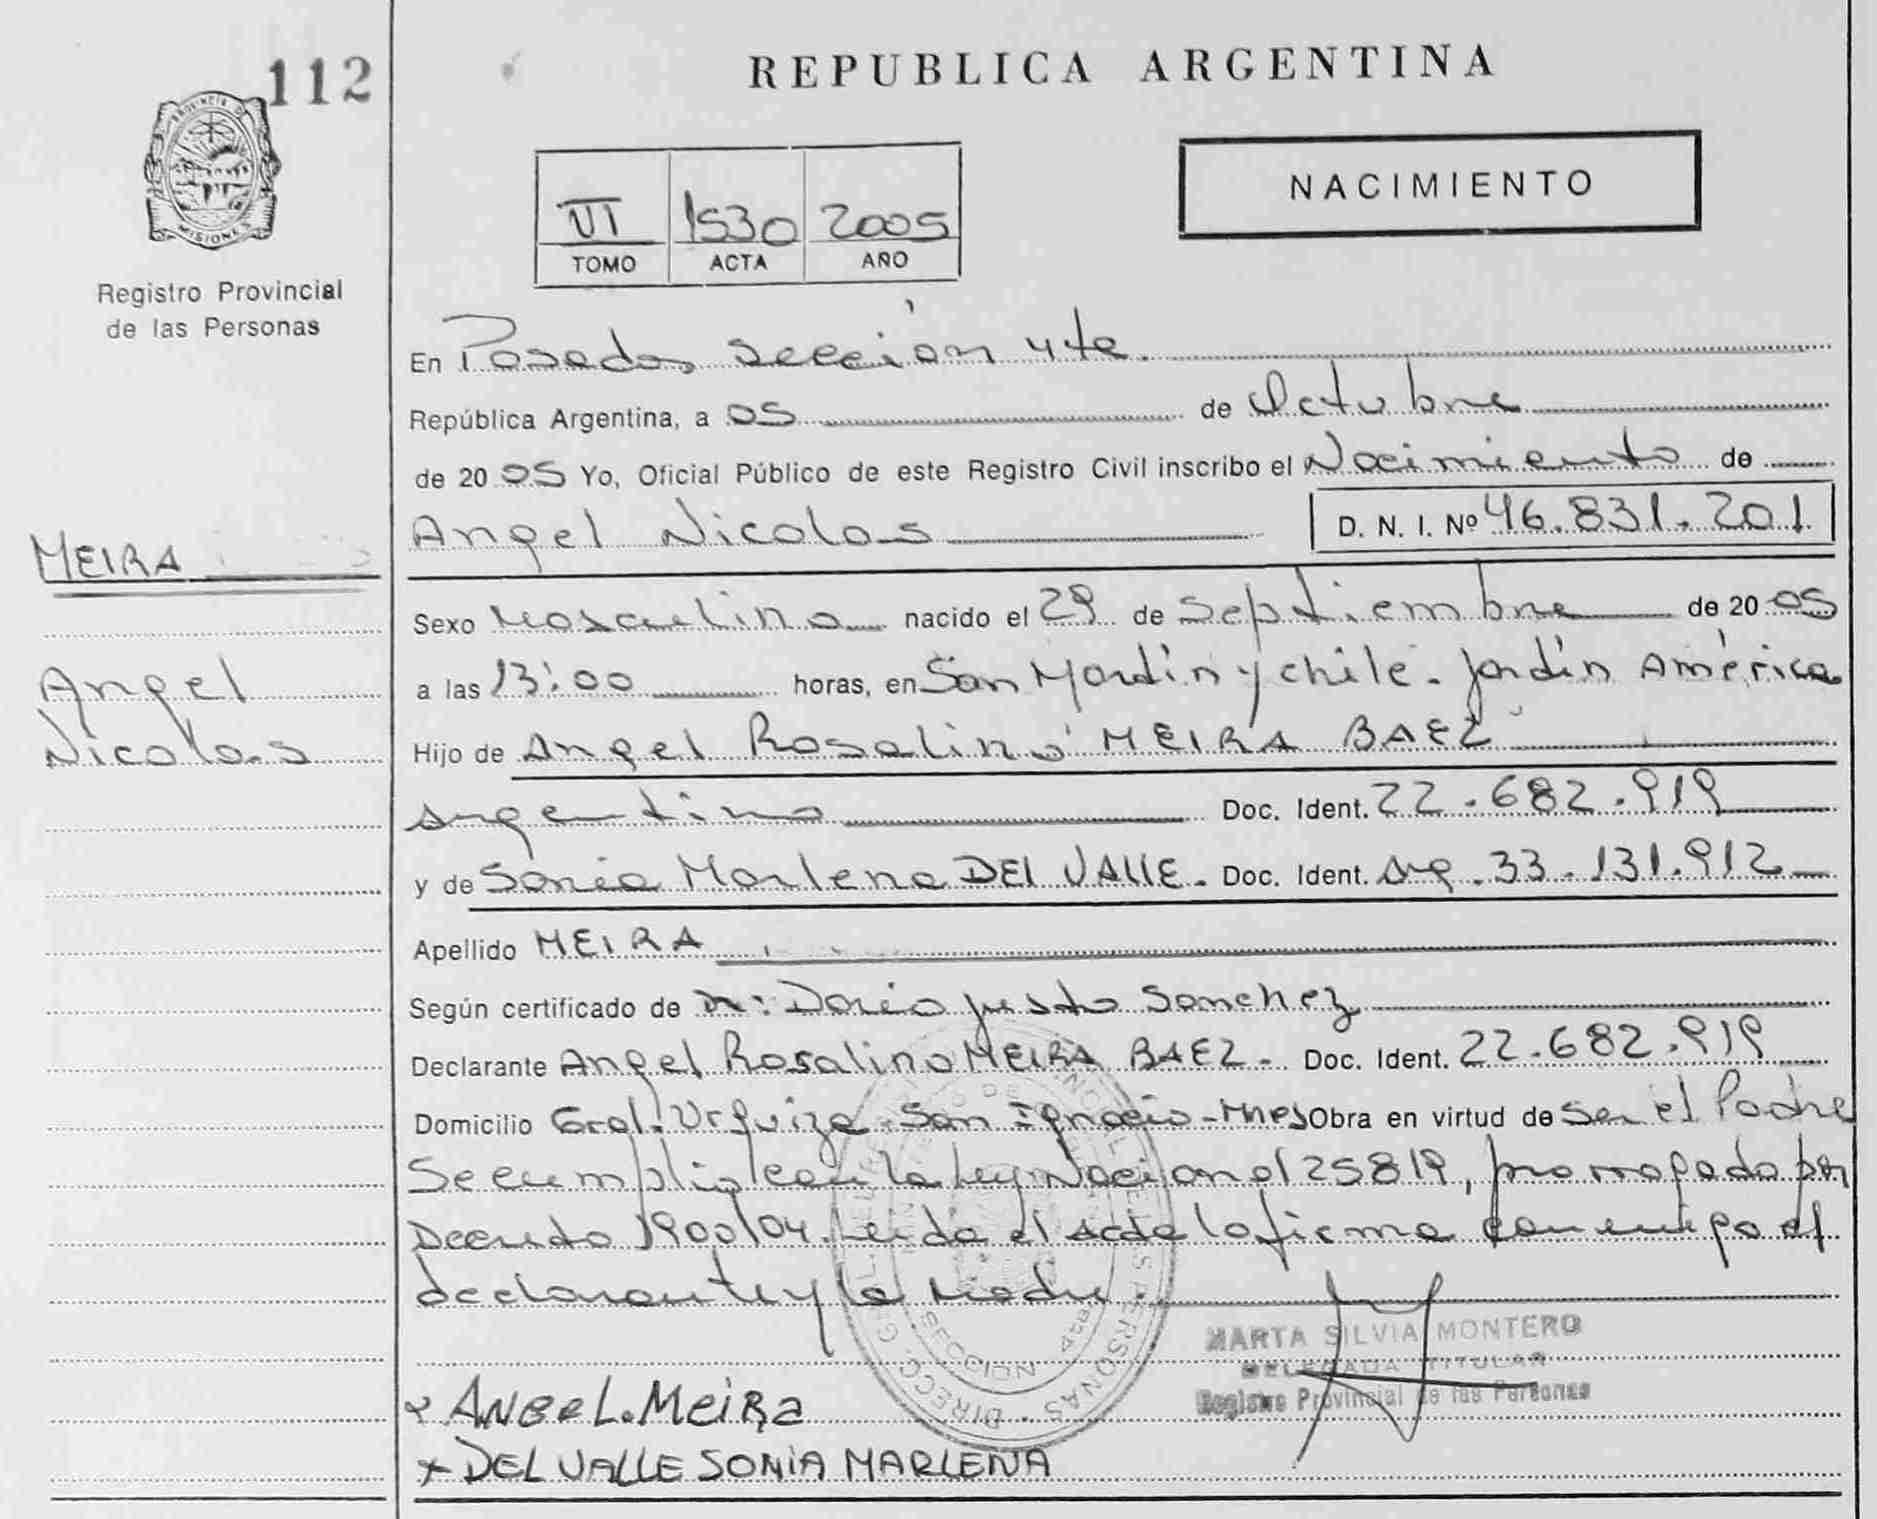 112
PROVINCIA DE
MISIONES
Registro Provincial
de las Personas
REPUBLICA ARGENTINA
VI 1530 2005
TOMO ACTA AÑO
NACIMIENTO
En Posadas sección 4ta.
República Argentina, a 05 de Octubre
de 2005 Yo, Oficial Público de este Registro Civil inscribo el Nacimiento de
Angel Nicolas D. N. I. Nº 46.831.201
MEIRA
Angel
Nicolas
Sexo Masculino nacido el 29 de Septiembre de 2005
a las 13:00 horas, en San Martín y Chile. Jardín América
Hijo de Angel Rosalino MEIRA BAEZ
argentino Doc. Ident. 22.682.919
y de Sonia Marlena DEL VALLE. Doc. Ident. Arg. 33.131.912
Apellido MEIRA
Según certificado de Dr: Dario Justo Sanchez
Declarante Angel Rosalino MEIRA BAEZ - Doc. Ident. 22.682.919
Domicilio Gral. Urquiza - San Ignacio - Mnes Obra en virtud de ser el Padre
Se cumplio con la Ley Nacional 25819, prorrogada por
Decreto 1900/04. Leida el acta la firma conmigo el
declarante y la Madre
MARTA SILVIA MONTERO
DELEGADA TITULAR
Registro Provincial de las Personas
x ANGEL. MEIRA
x DEL VALLE SONIA MARLENA